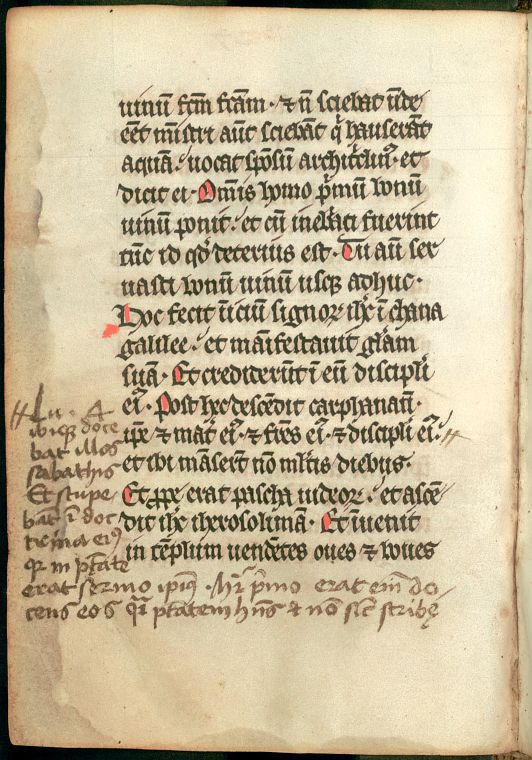 uinū fcm̄ fcām · ⁊ n̄ sciebat ūde
eēt mīstri aūt sciebāt q̇ hauserāt
aquā · uocat spōsū architᷓclinꝰ · et
dicit ei · Om̄is homo pͥmū bonū
uinū ponit · et cū inebͥati fuerint
tūc id qd̓ deterius est · Tu aū ser
uasti bonū uinū usqꝫ adhuc ·
Hoc fecit īicium signoꝝ ihc̄ ī chana
galilee · et manifestauit gl̄am
suā · Et crediderūt ī eū discipli
eiꝰ · Post hec descēdit capharnaū ·
ip̄e ⁊ mat̄ eiꝰ · ⁊ fr̄es eiꝰ · ⁊ discipli eiꝰ ·
et ibi māserūt nō ml̓tis diebus ·
Et ꝓpe erat pascha iudeoꝝ · et ascē
dit ihc̄ iherosolimā · Et īuenit
in tēplum uendētes oues ⁊ boues
Lu · 4
ibiqꝫ doce
bat illos
sabathis
Et stupe
bāt ī doc
trina eiꝰ
qꝛ in ptāte
erat sermo ipiꝰ · hr̄ pͥmo erat eim̄ do
cens eos qꝛ ptatem hn̄s & nō sic̄ scribę